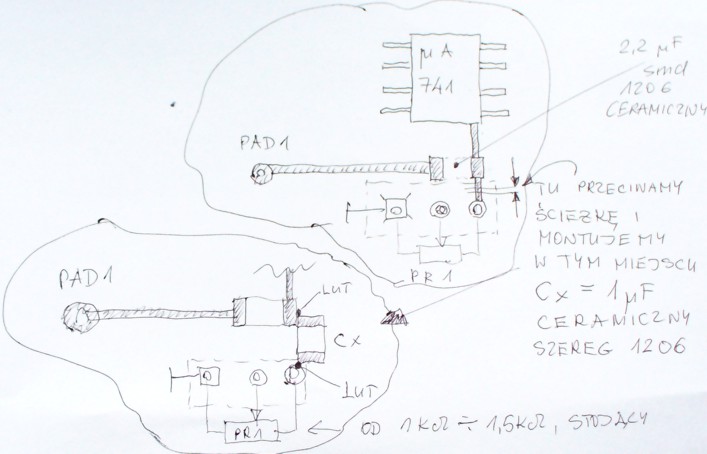 μA
741
2,2 μF
smd
1206
CERAMICZNY
PAD1
PR1
TU PRZECINAMY
ŚCIEŻKĘ I
MONTUJEMY
W TYM MIEJSCU
Cx = 1μF
CERAMICZNY
SZEREG 1206
PAD1
LUT
Cx
LUT
PR1
OD 1kΩ ÷ 1,5kΩ, STOJĄCY